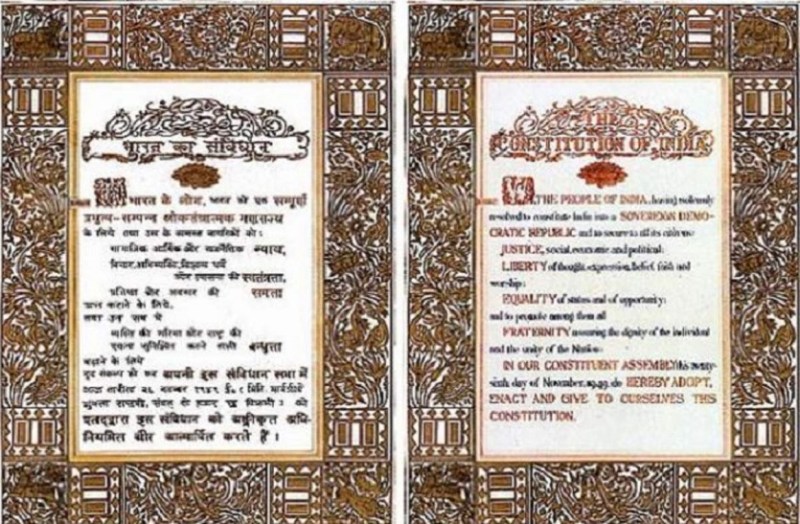 भारत का संविधान
भारत के लोग, भारत को एक सम्पूर्ण
प्रभुत्व-सम्पन्न लोकतंत्रात्मक गणराज्य
के लिये तथा उस के समस्त नागरिकों को :
सामाजिक आर्थिक और राजनैतिक न्याय,
विचार, अभिव्यक्ति, विश्वास धर्म
और उपासना की स्वतंत्रता,
प्रतिष्ठा और अवसर की समता
प्राप्त कराने के लिये,
तथा उन सब में
व्यक्ति की गरिमा और राष्ट्र की
एकता सुनिश्चित करने वाली बन्धुता
बढ़ाने के लिये
दृढ़ संकल्प हो कर अपनी इस संविधान सभा में
आज तारीख २६ नवम्बर १९४९ ई० ( मिति मार्गशीर्ष
शुक्ला सप्तमी, संवत् दो हजार छ विक्रमी ) को
एतद्द्वारा इस संविधान को अङ्गीकृत अधि-
नियमित और आत्मार्पित करते हैं ।
THE
CONSTITUTION OF INDIA
WE, THE PEOPLE OF INDIA, having solemnly
resolved to constitute India into a SOVEREIGN DEMO-
CRATIC REPUBLIC and to secure to all its citizens:
JUSTICE, social, economic and political;
LIBERTY of thought, expression, belief, faith and
worship;
EQUALITY of status and of opportunity;
and to promote among them all
FRATERNITY assuring the dignity of the individual
and the unity of the Nation;
IN OUR CONSTITUENT ASSEMBLY this twenty-
sixth day of November, 1949, do HEREBY ADOPT,
ENACT AND GIVE TO OURSELVES THIS
CONSTITUTION.